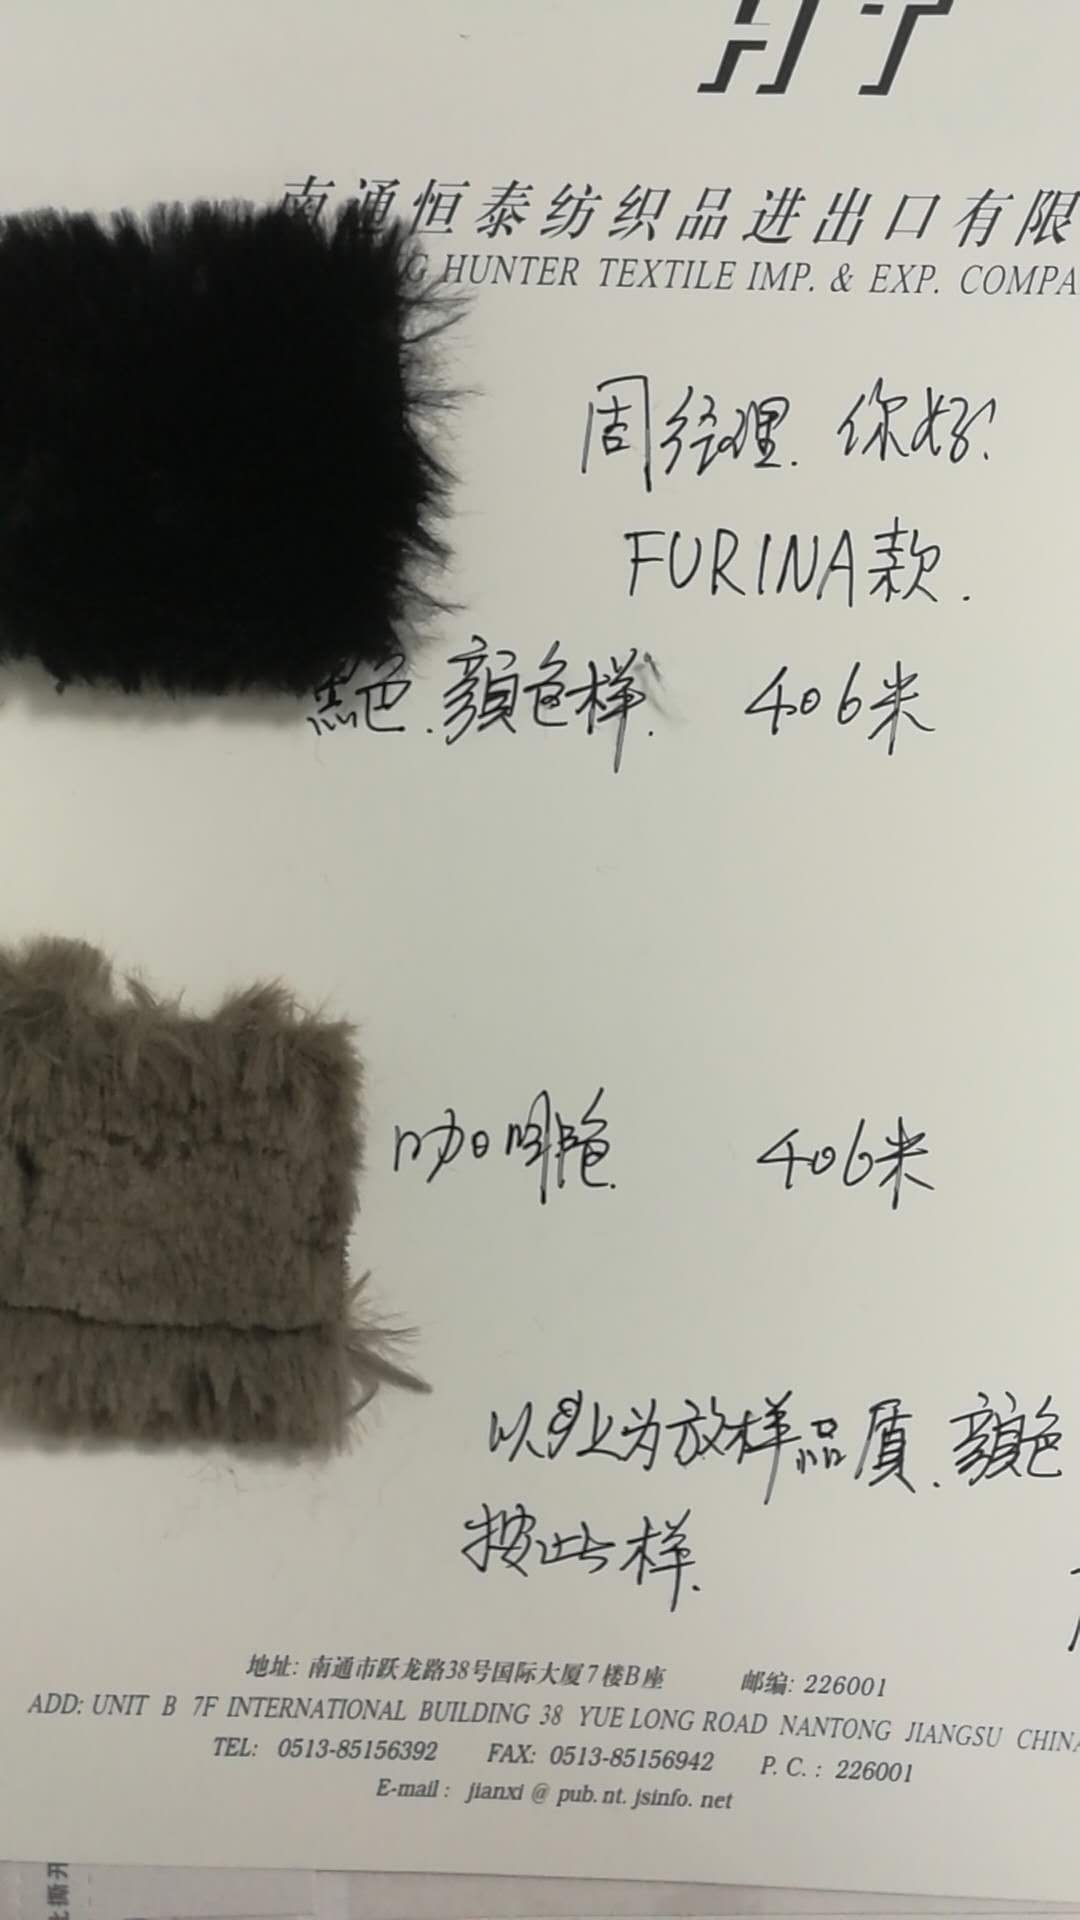 南通恒泰纺织品进出口有限
G HUNTER TEXTILE IMP. & EXP. COMPA
周经理.你好!
FURINA款.
黑色.颜色样. 406米
咖啡色. 406米
以上为放样品质.颜色
按此样.
地址: 南通市跃龙路38号国际大厦7楼B座 邮编: 226001
ADD: UNIT B 7F INTERNATIONAL BUILDING 38 YUE LONG ROAD NANTONG JIANGSU CHINA
TEL: 0513-85156392 FAX: 0513-85156942 P. C. : 226001
E-mail : jianxi @ pub. nt. jsinfo. net
撕开